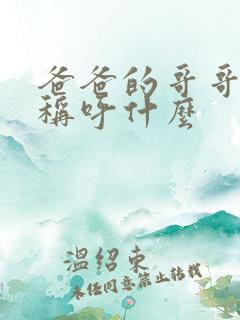 爸爸的哥哥
稱呼什麼
溫紹東
未经同意禁止转载